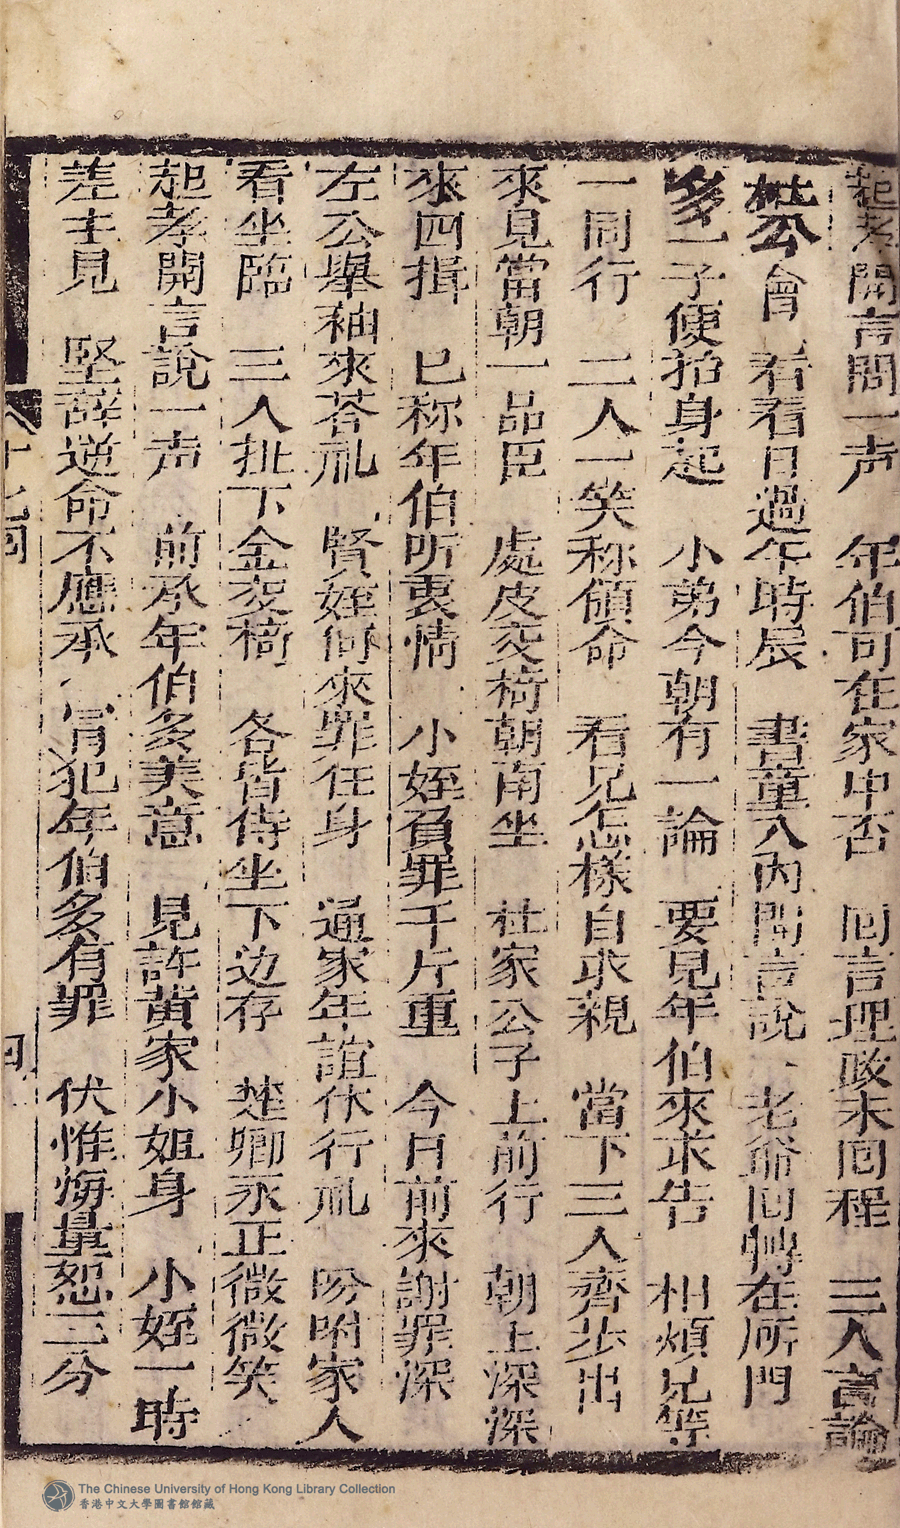 起孝開言問一声　年伯可在家中否　囘言理政未囘程　三人言論
樊公會　看看日過午時辰　書童入內開言說　老爺囘轉在所門
多一子便抬身起　小弟今朝有一論　要見年伯來求告　相煩兄等
一同行　二人一笑称領命　看兄怎樣自求親　當下三人齊步出
來見當朝一品臣　處皮交椅朝南坐　杜家公子上前行　朝上深深
來四揖　巳称年伯听衷情　小姪負罪千斤重　今日前來謝罪深
左公舉袖來荅礼　賢姪何來罪在身　通家年誼休行礼　吩咐家人
看坐臨　三人扯下金交椅　各皆侍坐下边存　楚卿永正微微笑
起孝開言說一声　前承年伯多美意　見許黄家小姐身　小姪一時
差主見　堅辞逆命不應承　冐犯年伯多有罪　伏惟海量恕三分
十七囘
四
The Chinese University of Hong Kong Library Collection
香港中文大學圖書館館藏